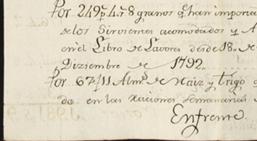 Por 2495p 4r 8 granos q.e han importa
de los Sirvientes acomodados y A
en el Libro de Lavores desde 18. de
Diziembre de 1792
Por 67 f 11 Alm.s de Maiz y trigo q
do en las raciones semanarias
Enfrente